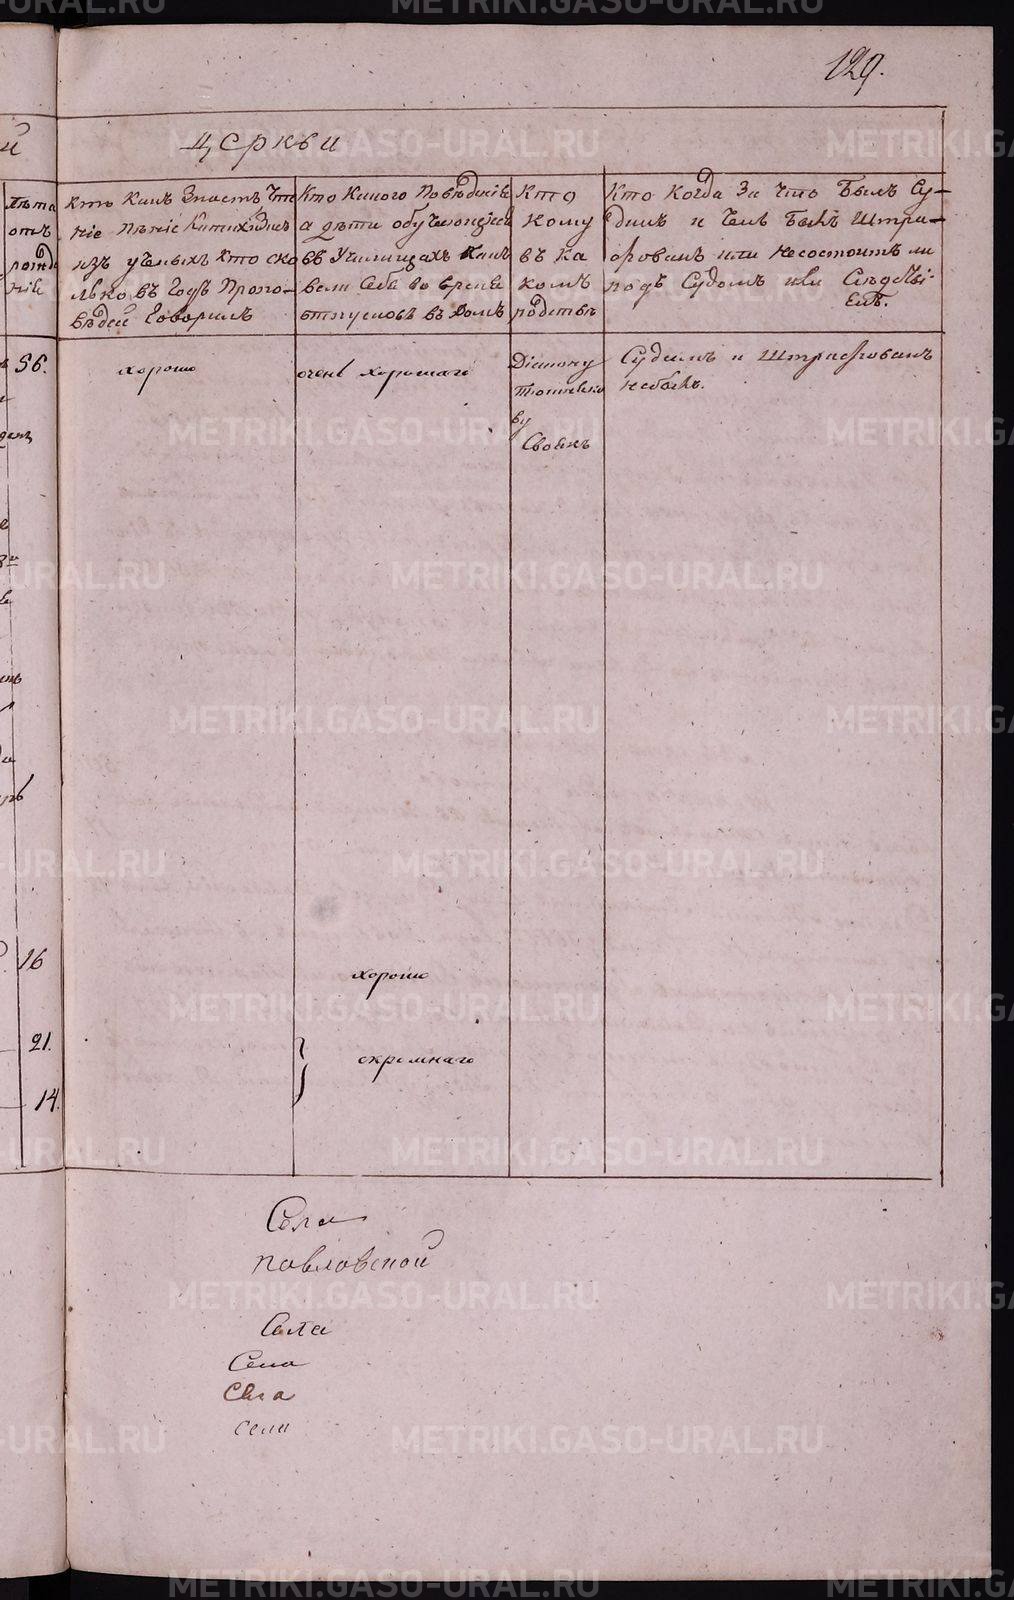 129.
Церкви
лѣта
отъ
рожде
нія
Кто какъ знаетъ Чте
ніе пѣніе Катихизисъ
изъ ученыхъ кто ско
лько въ годъ пропо-
вѣдей говорилъ
Кто какого поведенія
а дѣти обучающіяся
въ училищахъ какъ
вели себя во время
отпусковъ въ домъ
Кто
кому
въ ка
комъ
родствѣ
Кто когда за что былъ су-
димъ и чемъ былъ штра-
фованъ или несостоитъ ли
подъ судомъ или слѣдстві-
емъ.
56.
хорошо
очень хорошаго
Діакону
ву
Своякъ
Судимъ и штрафованъ
небылъ.
16
хорошо
21.
скромнаго
14.
Села
Павловской
Села
Села
Села
Села
METRIKI.GASO-URAL.RU